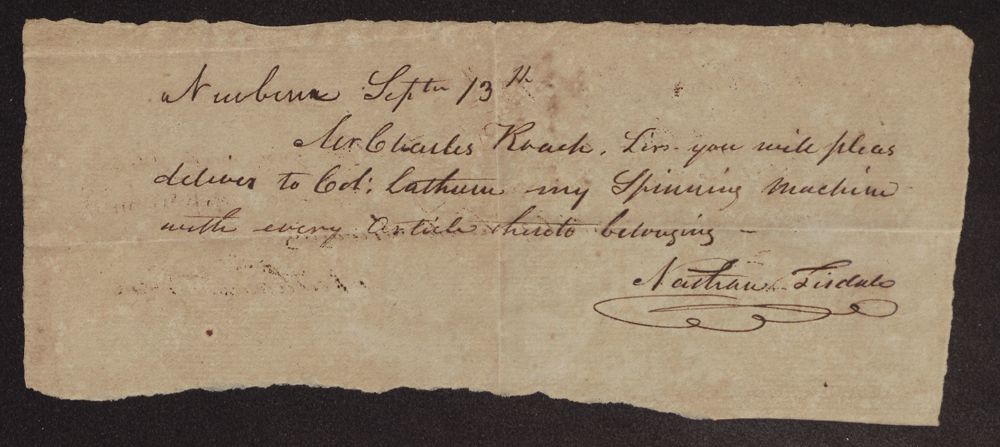 Newbern Septr 13th
Mr Charles Roach. Sir you will pleas
deliver to Col: Lathum my Spinning Machine
with every Article thereto belonging -
Nathan Tisdale